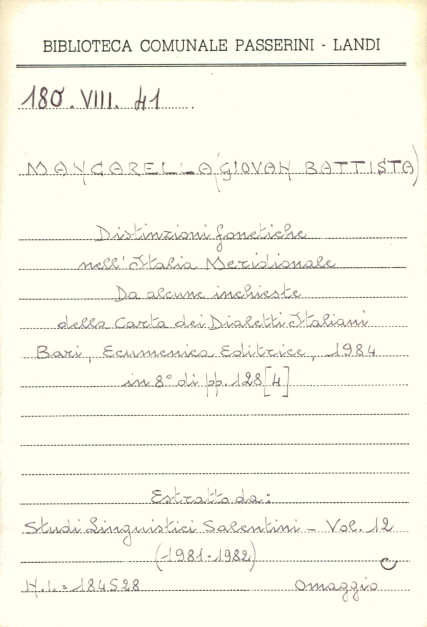 BIBLIOTECA COMUNALE PASSERINI - LANDI
180. VIII. 41
MANCARELLA (GIOVAN BATTISTA)
Distinzioni fonetiche
nell'Italia Meridionale
Da alcune inchieste
della Carta dei Dialetti Italiani
Bari, Ecumenica Editrice, 1984
in 8° di pp. 128 [4]
Estratto da:
Studi Linguistici Salentini - Vol. 12
(1981-1982)
N.I. = 184528 Omaggio